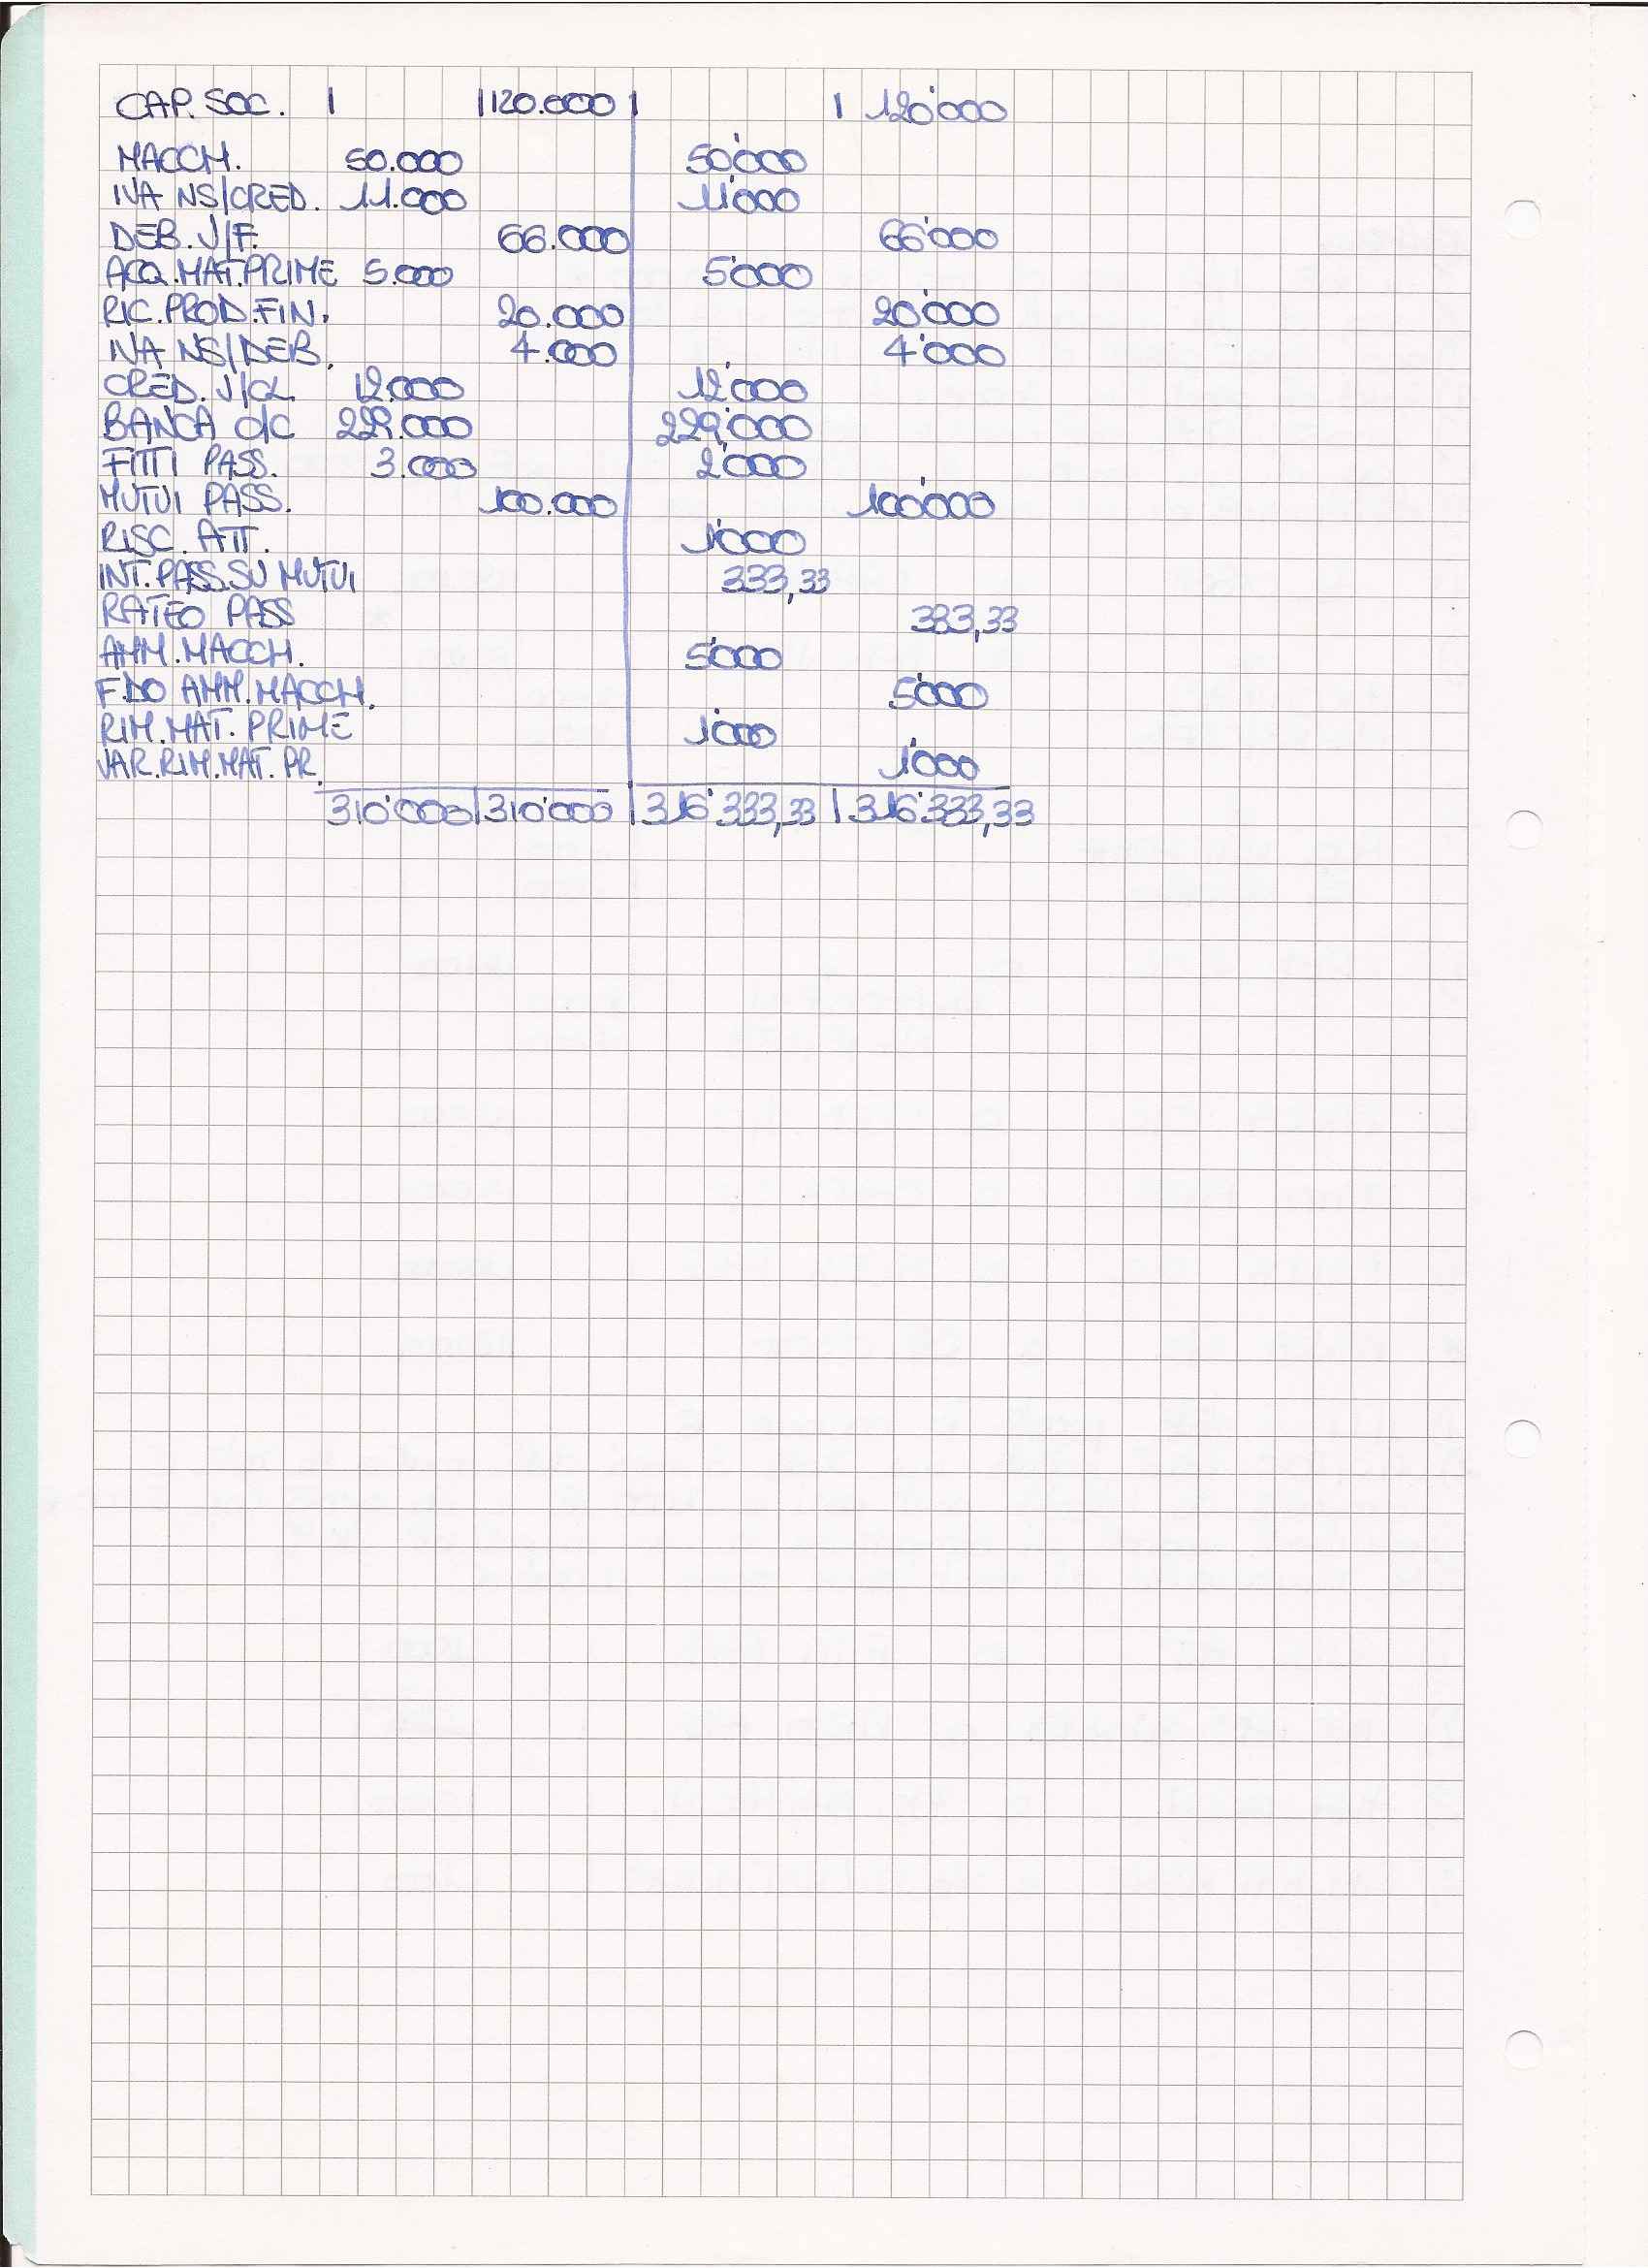 CAP. SOC. | |120.000| | 120'000
MACCH. 50.000 50'000
IVA NS/CRED. 11.000 11'000
DEB. V/F. 66.000 66'000
ACQ.MAT.PRIME 5.000 5'000
RIC.PROD.FIN. 20.000 20'000
IVA NS/DEB. 4.000 4'000
CRED. V/CL. 12.000 12'000
BANCA c/c 229.000 229'000
FITTI PASS. 3.000 2'000
MUTUI PASS. 100.000 100'000
RISC. ATT. 1'000
INT.PASS.SU MUTUI 333,33
RATEO PASS 333,33
AMM.MACCH. 5'000
F.DO AMM.MACCH. 5'000
RIM.MAT. PRIME 1'000
VAR.RIM.MAT. PR. 1'000
310'000|310'000|316'333,33|316'333,33